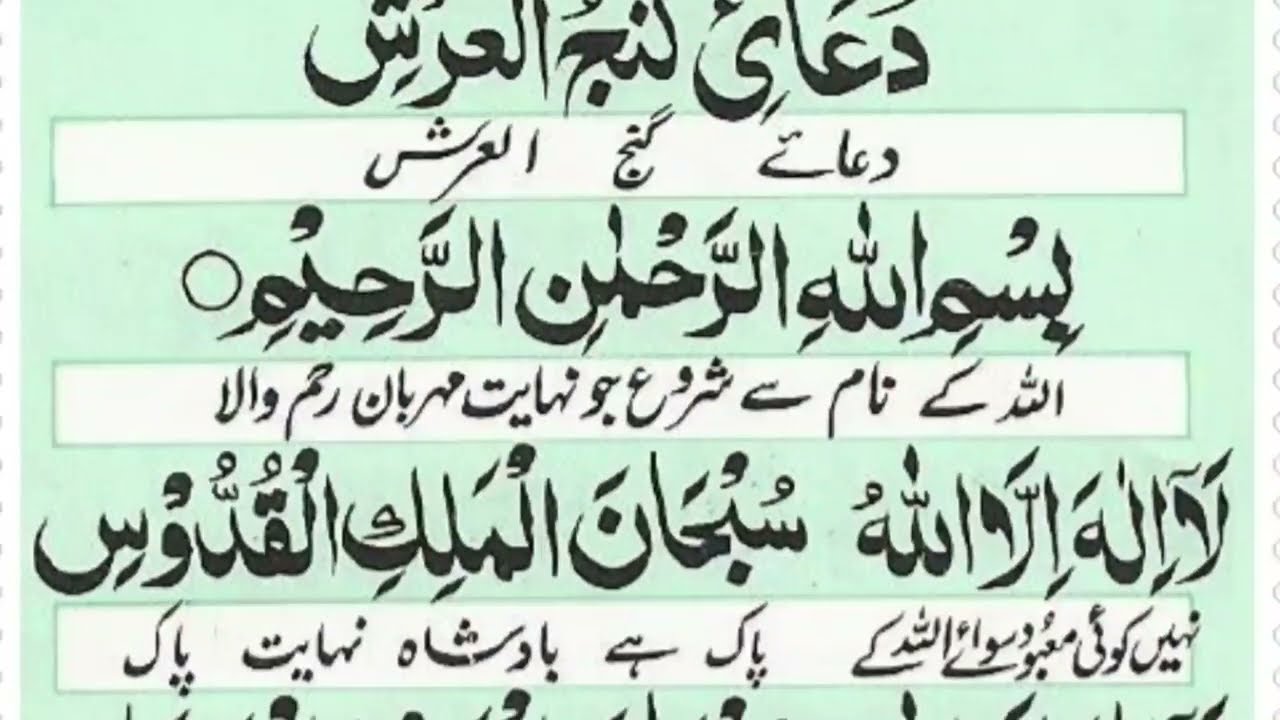 دُعَائِ گنجُ الْعَرْشِ
دعائے گنج العرش
بِسْمِ اللّٰهِ الرَّحْمٰنِ الرَّحِيْمِ○
اللہ کے نام سے شروع جو نہایت مہربان رحم والا
لَآ اِلٰهَ اِلَّا اللّٰهُ سُبْحَانَ الْمَلِكِ الْقُدُّوْسِ
نہیں کوئی معبود سوائے اللہ کے پاک ہے بادشاہ نہایت پاک